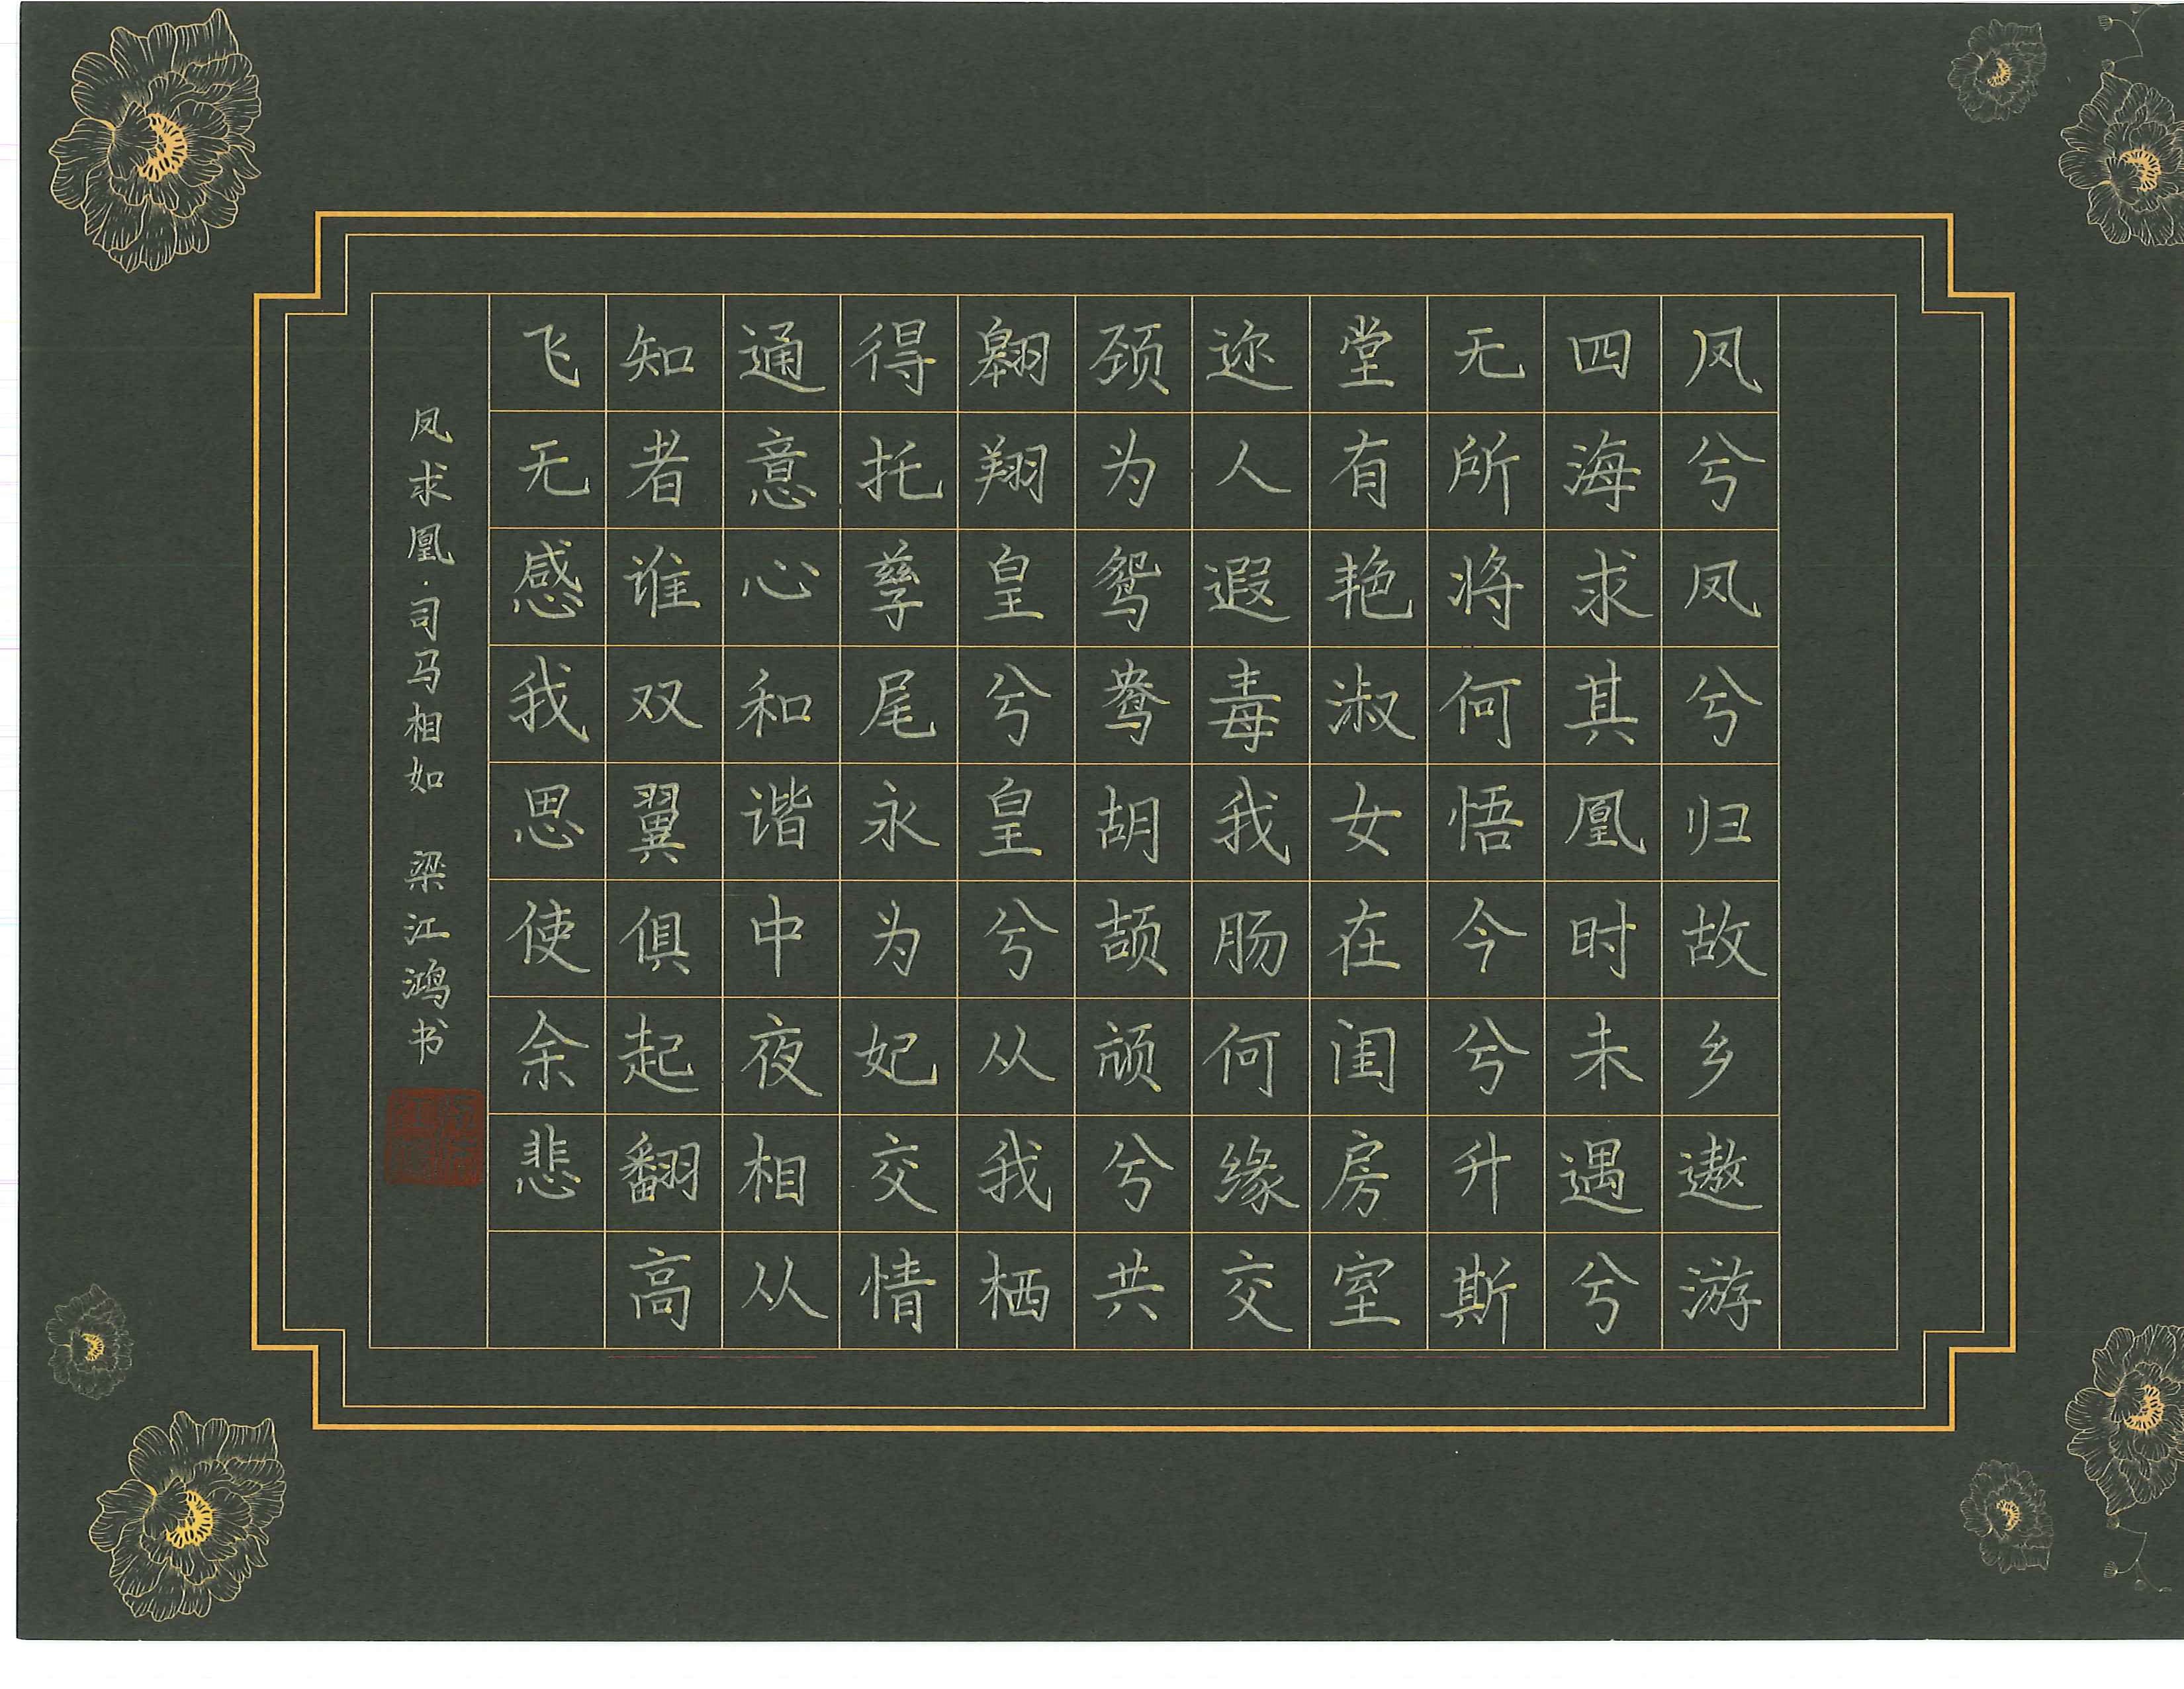 凤兮凤兮归故乡遨游
四海求其凰时未遇兮
无所将何悟今兮升斯
堂有艳淑女在闺房室
迩人遐毒我肠何缘交
颈为鸳鸯胡颉颃兮共
翱翔皇兮皇兮从我栖
得托孳尾永为妃交情
通意心和谐中夜相从
知者谁双翼俱起翻高
飞无感我思使余悲
凤求凰·司马相如 梁江鸿书